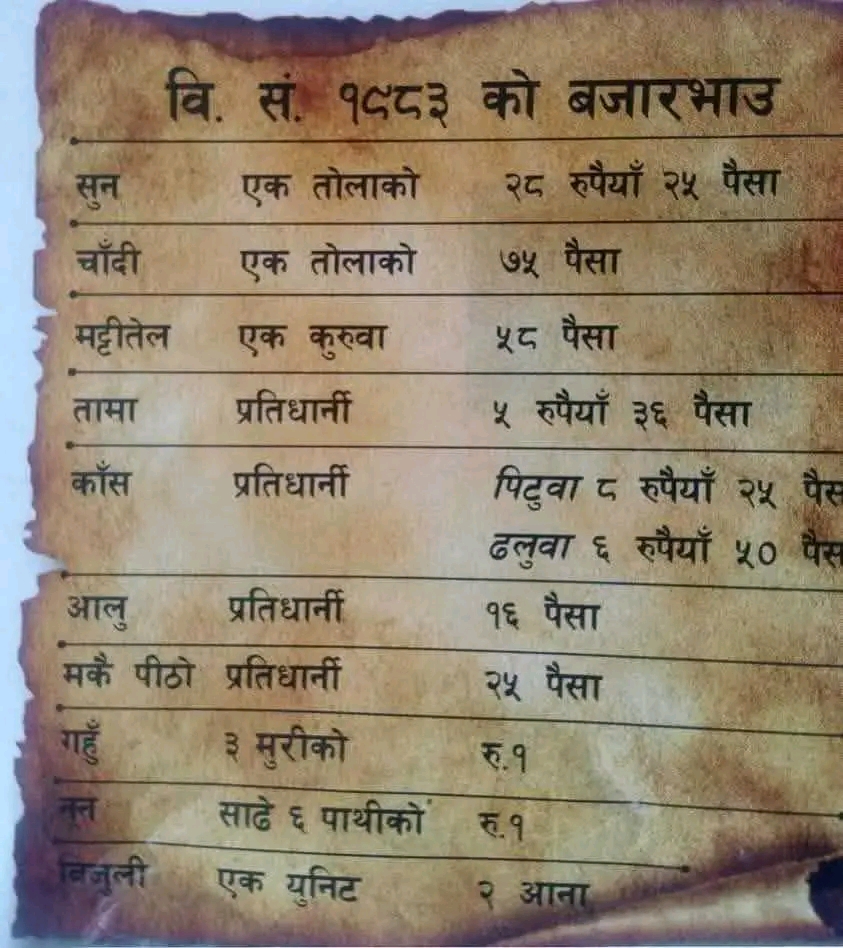 वि. सं. १९८३ को बजारभाउ
सुन एक तोलाको २८ रुपैयाँ २५ पैसा
चाँदी एक तोलाको ७५ पैसा
मट्टीतेल एक कुरुवा ५८ पैसा
तामा प्रतिधार्नी ५ रुपैयाँ ३६ पैसा
काँस प्रतिधार्नी पिटुवा ८ रुपैयाँ २५ पैस
ढलुवा ६ रुपैयाँ ५० पैस
आलु प्रतिधार्नी १६ पैसा
मकै पीठो प्रतिधार्नी २५ पैसा
गहुँ ३ मुरीको रु.१
नून साढे ६ पाथीको रु.१
बिजुली एक युनिट २ आना